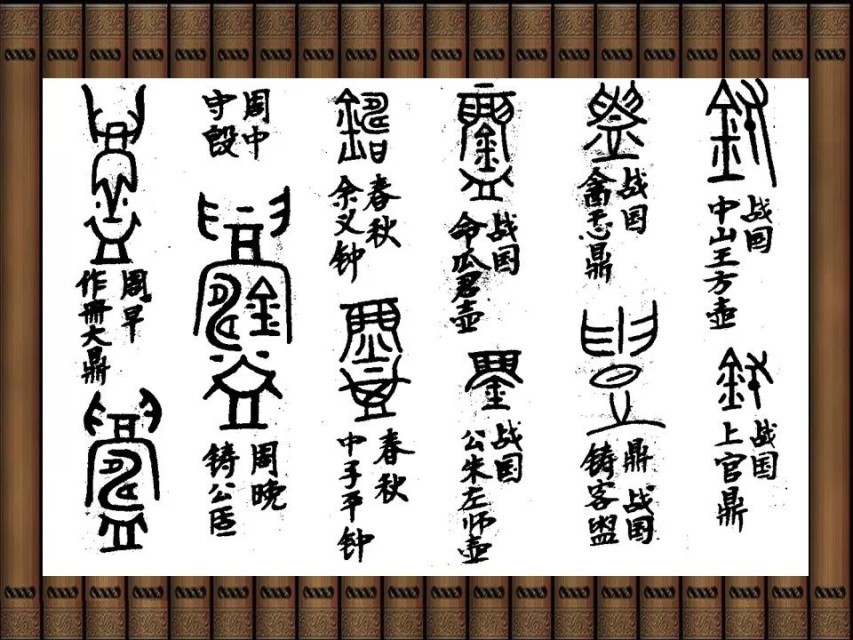 周早
作冊大鼎
周中
守𣪘
周晚
铸公
春秋
余义钟
春秋
中子平钟
战国
命瓜君壶
战国
公朱左师壶
战国
忎鼎
战国
铸客盥
鼎
战国
中山王方壶
战国
上官鼎